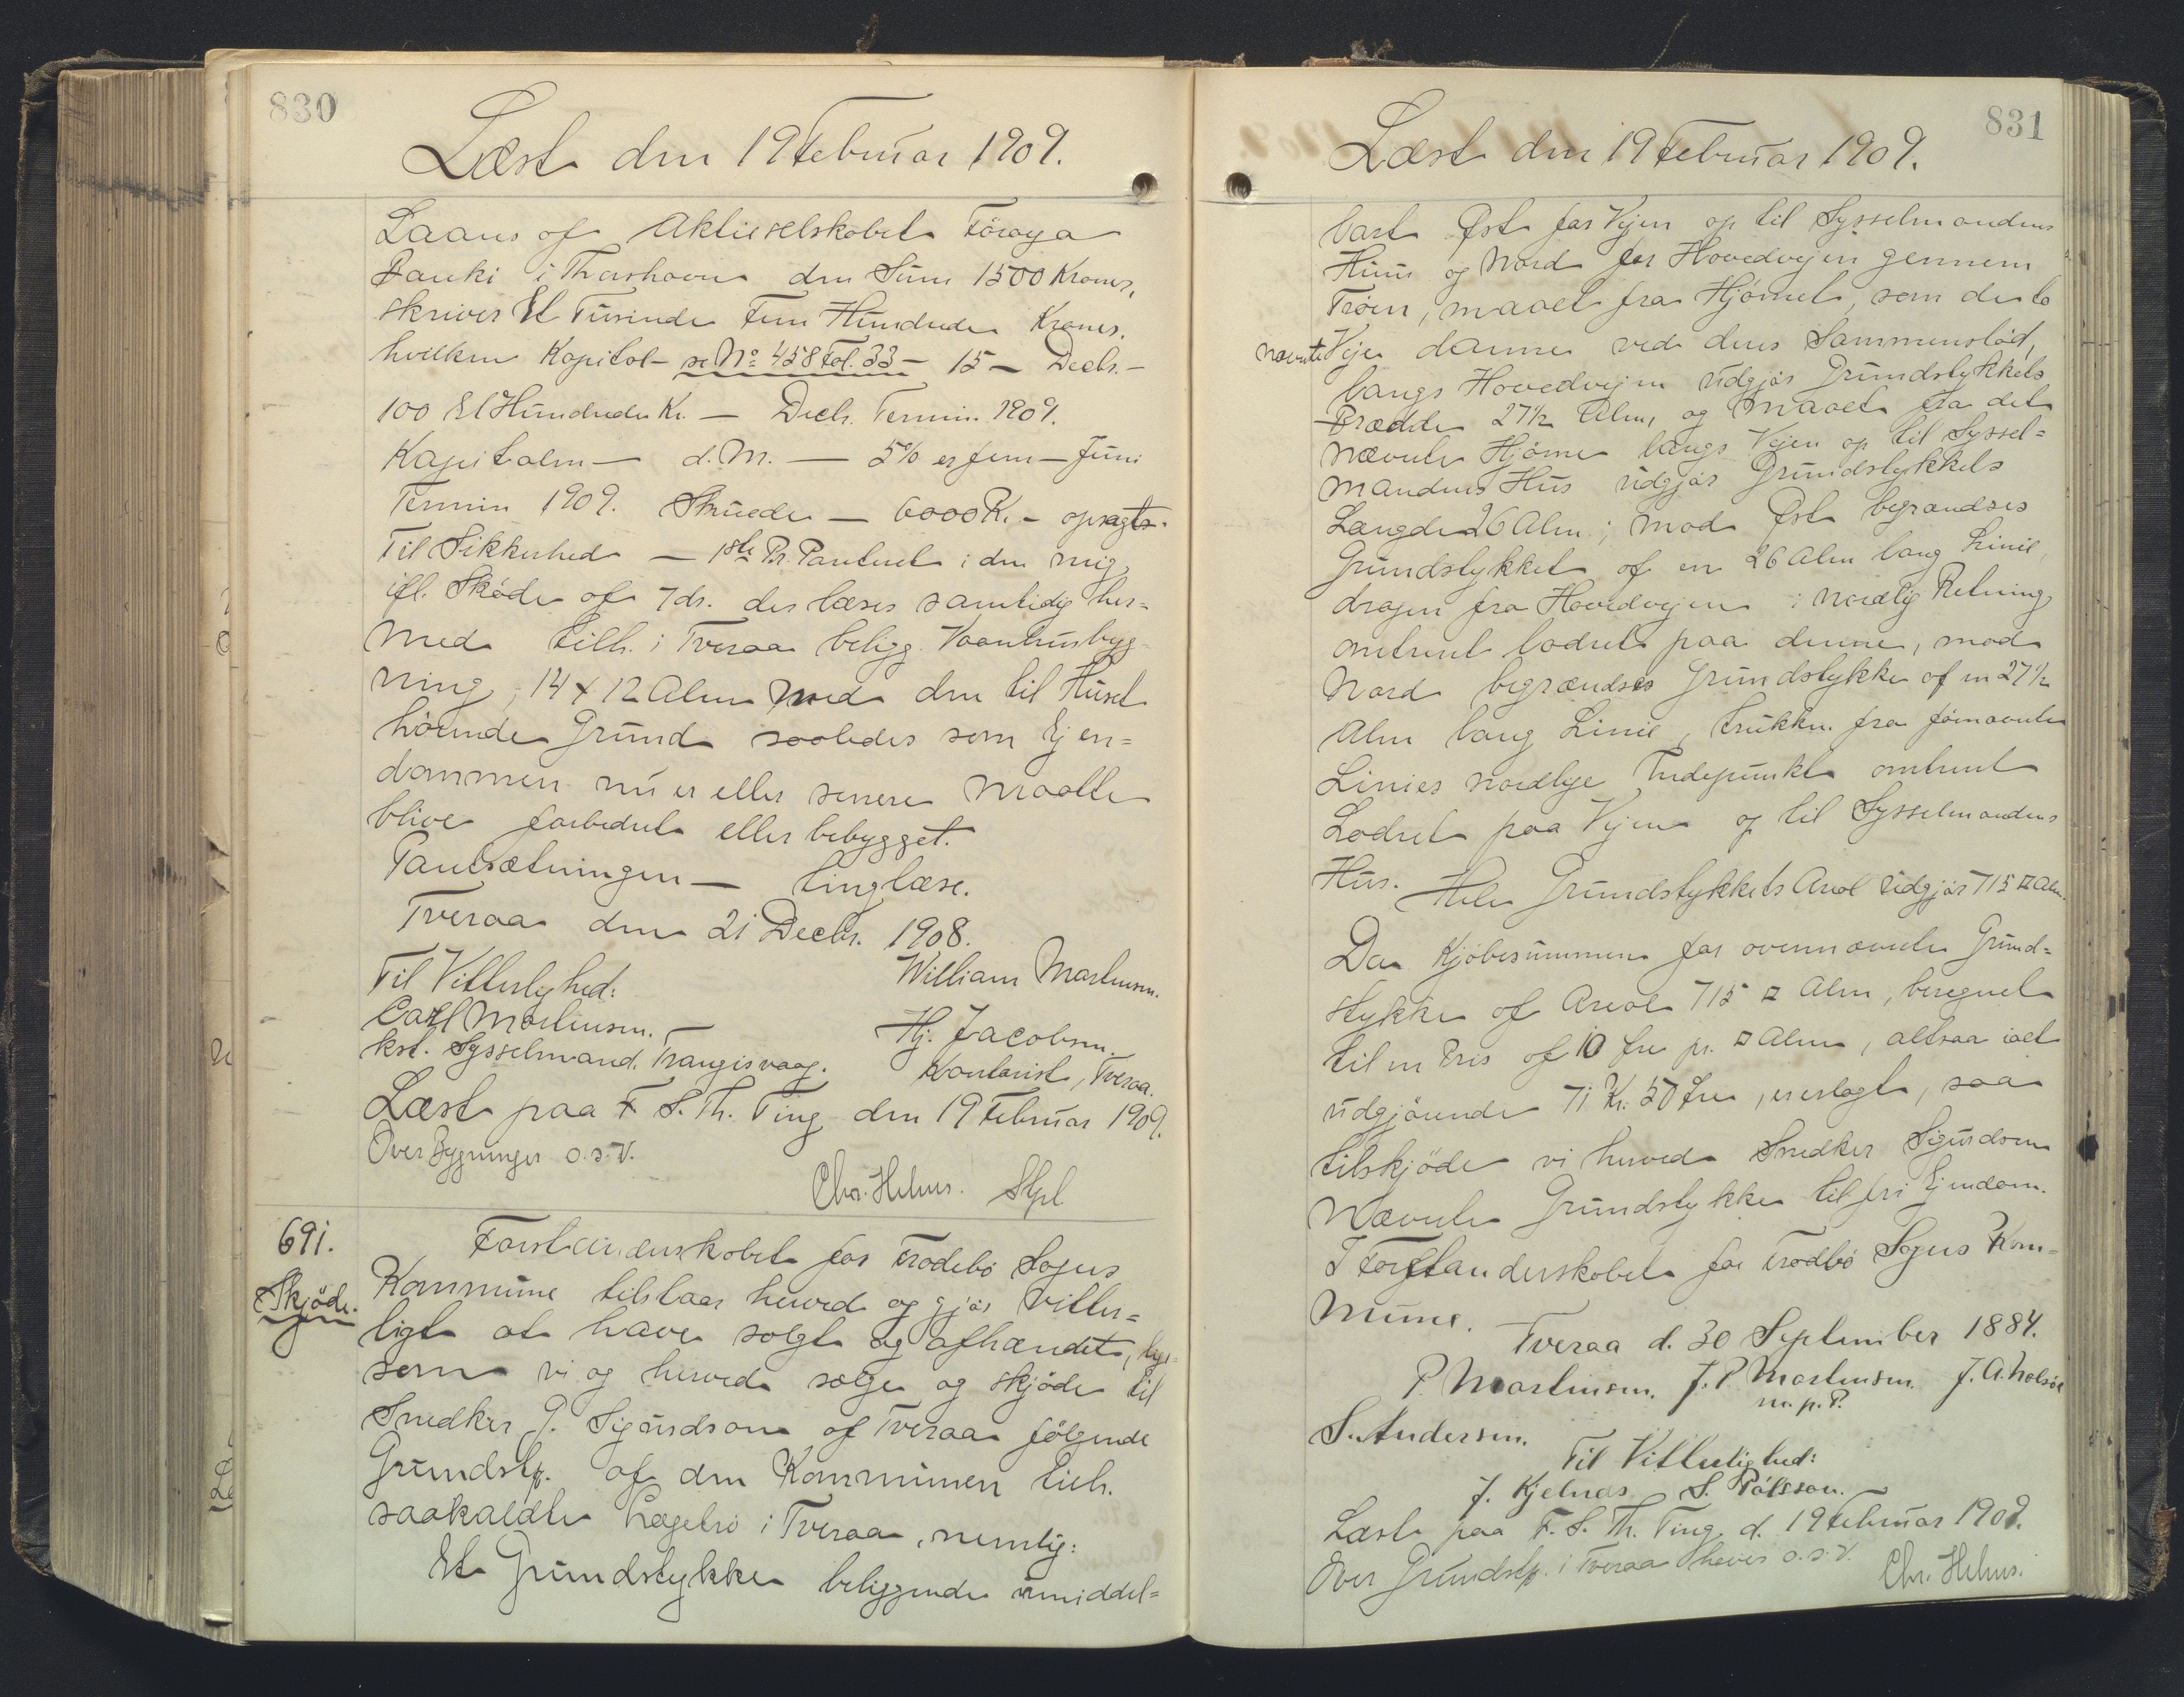 830
Læst den 19 Februar 1909.
Laans af Aktieselskabet Föroya
Banki i Thorshavn den Sum 1500 Kroner,
skriver Et Tusinde Fem Hundrede Kroner.
hvilken Kapital - se No 458 Fol. 33 - 15 - Decbr. -
100 Et Hundrede Kr. - Decbr. Termin 1909.
Kapitalen - d. M. - 5% er fem - Juni
Termin 1909. Skuede - 6000 K. - opsagts.
Til Sikkerhed - 1ste Pr. Panteret i den mig
ifl. Skøde af 7 ds. der læses samtidig her=
med tilh. i Tveraa beligg. Vaaninsbyg-
ning, 14 x 12 Alen med den til Huset
hörende Grund saaledes som Ejen=
dommen nu er eller senere maatte
blive forbedret eller bebygget.
Pantsætningen - tinglæse.
Tveraa den 21 Decbr. 1908.
Til Vitterlighed: William Mortensen.
Carl Mortensen. Hj. Jacobsen.
kst. Sysselmand. Trangisvaag. Kontorist, Tveraa.
Læst paa F. S. Th. Ting den 19 Februar 1909.
Over Bygninger o.s.v.
Chr. Helms. Stpl.
691. Forstanderskabet for Frodebö Sogns
Skjöde. Kommune tilstaar herved og gjör vitter=
ligt at have solgt og afhændet, lige=
som vi og herved sælge og skjöde til
Snedker P. Sigurdson af Tveraa fölgende
Grundstk. af den Kommunen tilh.
saakaldte i Tveraa, nemlig:
Et Grundstykke beliggende umiddel=
831
Læst den 19 Februar 1909.
bart Øst for Vejen op til Sysselmandens
Huus og Nord for Hovedvejen gennem
Trøen, maalt fra Hjörnet, som de to
nævnte Veje danne ved deres Sammenstöd,
langs Hovedvejen udgjör Grundstykkets
Brædde 27½ Alen, og maalt fra det
nævnte Hjörne langs Vejen op til Syssel=
mandens Hus udgjör Grundstykkets
Længde 26 Alen; mod Øst begrændses
Grundstykket af en 26 Alen lang Linie,
dragen fra Hovedvejen i nordlig Retning
omtrent lodret paa denne, mod
Nord begrændses Grundstykket af en 27½
Alen lang Linie, trukken fra förnævnte
Linies nordlige Endepunkt omtrent
Lodret paa Vejen op til Sysselmandens
Hus. Hele Grundstykkets Areal udgjör 715 □ Alen.
Da Kjöbesummen for ovennævnte Grund=
stykke af Areal 715 □ Alen, beregnet
til en Pris af 10 Øre pr. □ Alen, altsaa ialt
udgjörende 71 Kr. 50 Øre, er erlagt, saa
tilskjöde vi herved Snedker Sigurdson
nævnte Grundstykke til fri Ejendom.
I Forstanderskabet for Frodbö Sogns Kom=
mune.
Tveraa d. 30 September 1884.
P. Mortensen. J. P. Mortensen. J. A. Holsöe
m. p. P.
S. Andersen.
Til Vitterlighed:
J. Kjelnæs S. Pálsson.
Læst paa F. S. Th. Ting d. 19 Februar 1909.
Over Grundstk. i Tveraa haves o.s.v.
Chr. Helms.